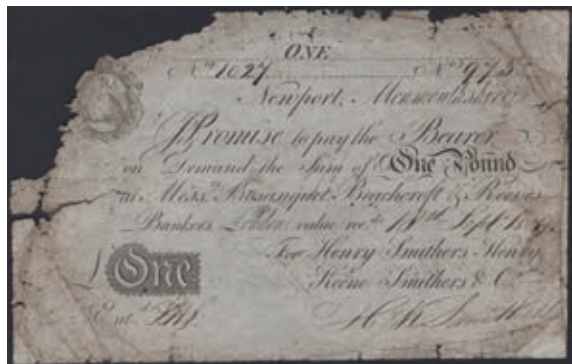 ONE
No 1027 No 973
Newport, Monmouthshire
I Promise to pay the Bearer
on Demand the Sum of One Pound
at Messrs Bosanquet Beachcroft & Reeves
Bankers London value recd 18th Sept
For Henry Smithers Henry
Keene Smithers & Co
One
Entd